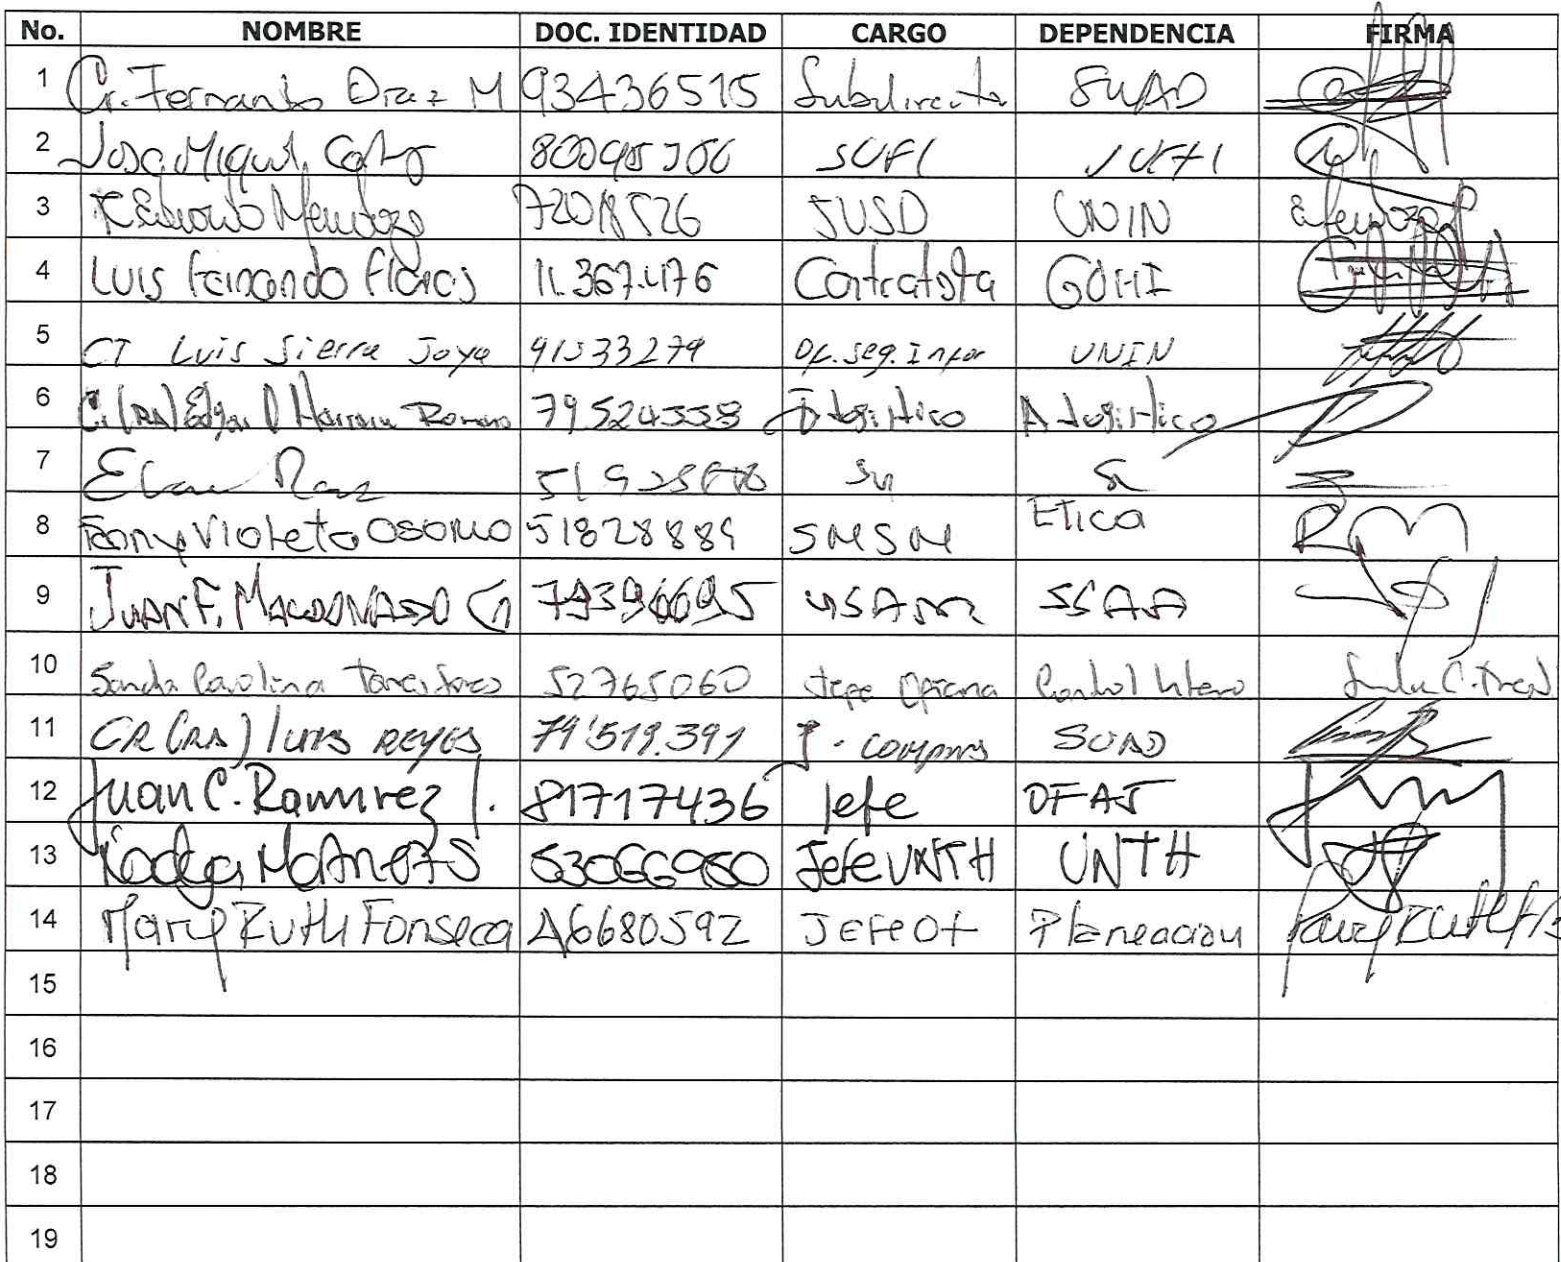 No. NOMBRE DOC. IDENTIDAD CARGO DEPENDENCIA FIRMA
1 Cr. Fernando Diaz M 93436515 Subdirector SUAD
2 Jose Miguel 80095306 SUFI SUFI
3 Mendoza 72018526 SUSD UNIN
4 Luis Fernando Flores 11.367.476 Contratista GOHI
5 CT Luis Sierra Joya 91533279 Of. Seg. Infor UNIN
6 Cr (RA) Edgar Romero 79524338 Logistico A Logistico
7
8 Fanny Violeta Osorio 51828889 SMSM Etica
9 Juan F. 79396695 SSAA
10 Sandra Carolina Torres 52765060 Jefe Oficina Control Interno
11 CR (RA) Luis Reyes 79'519.391 J. Compras SUAD
12 Juan C. Ramirez J. 81717436 Jefe OFAJ
13 53066950 Jefe UNTH UNTH
14 Mary Ruth Fonseca 46680592 Jefe Of Planeacion
15
16
17
18
19